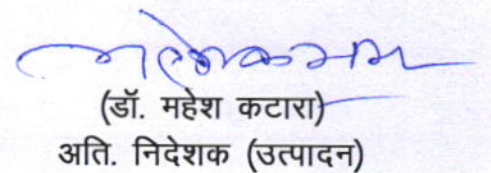 (डॉ. महेश कटारा)
अति. निदेशक (उत्पादन)